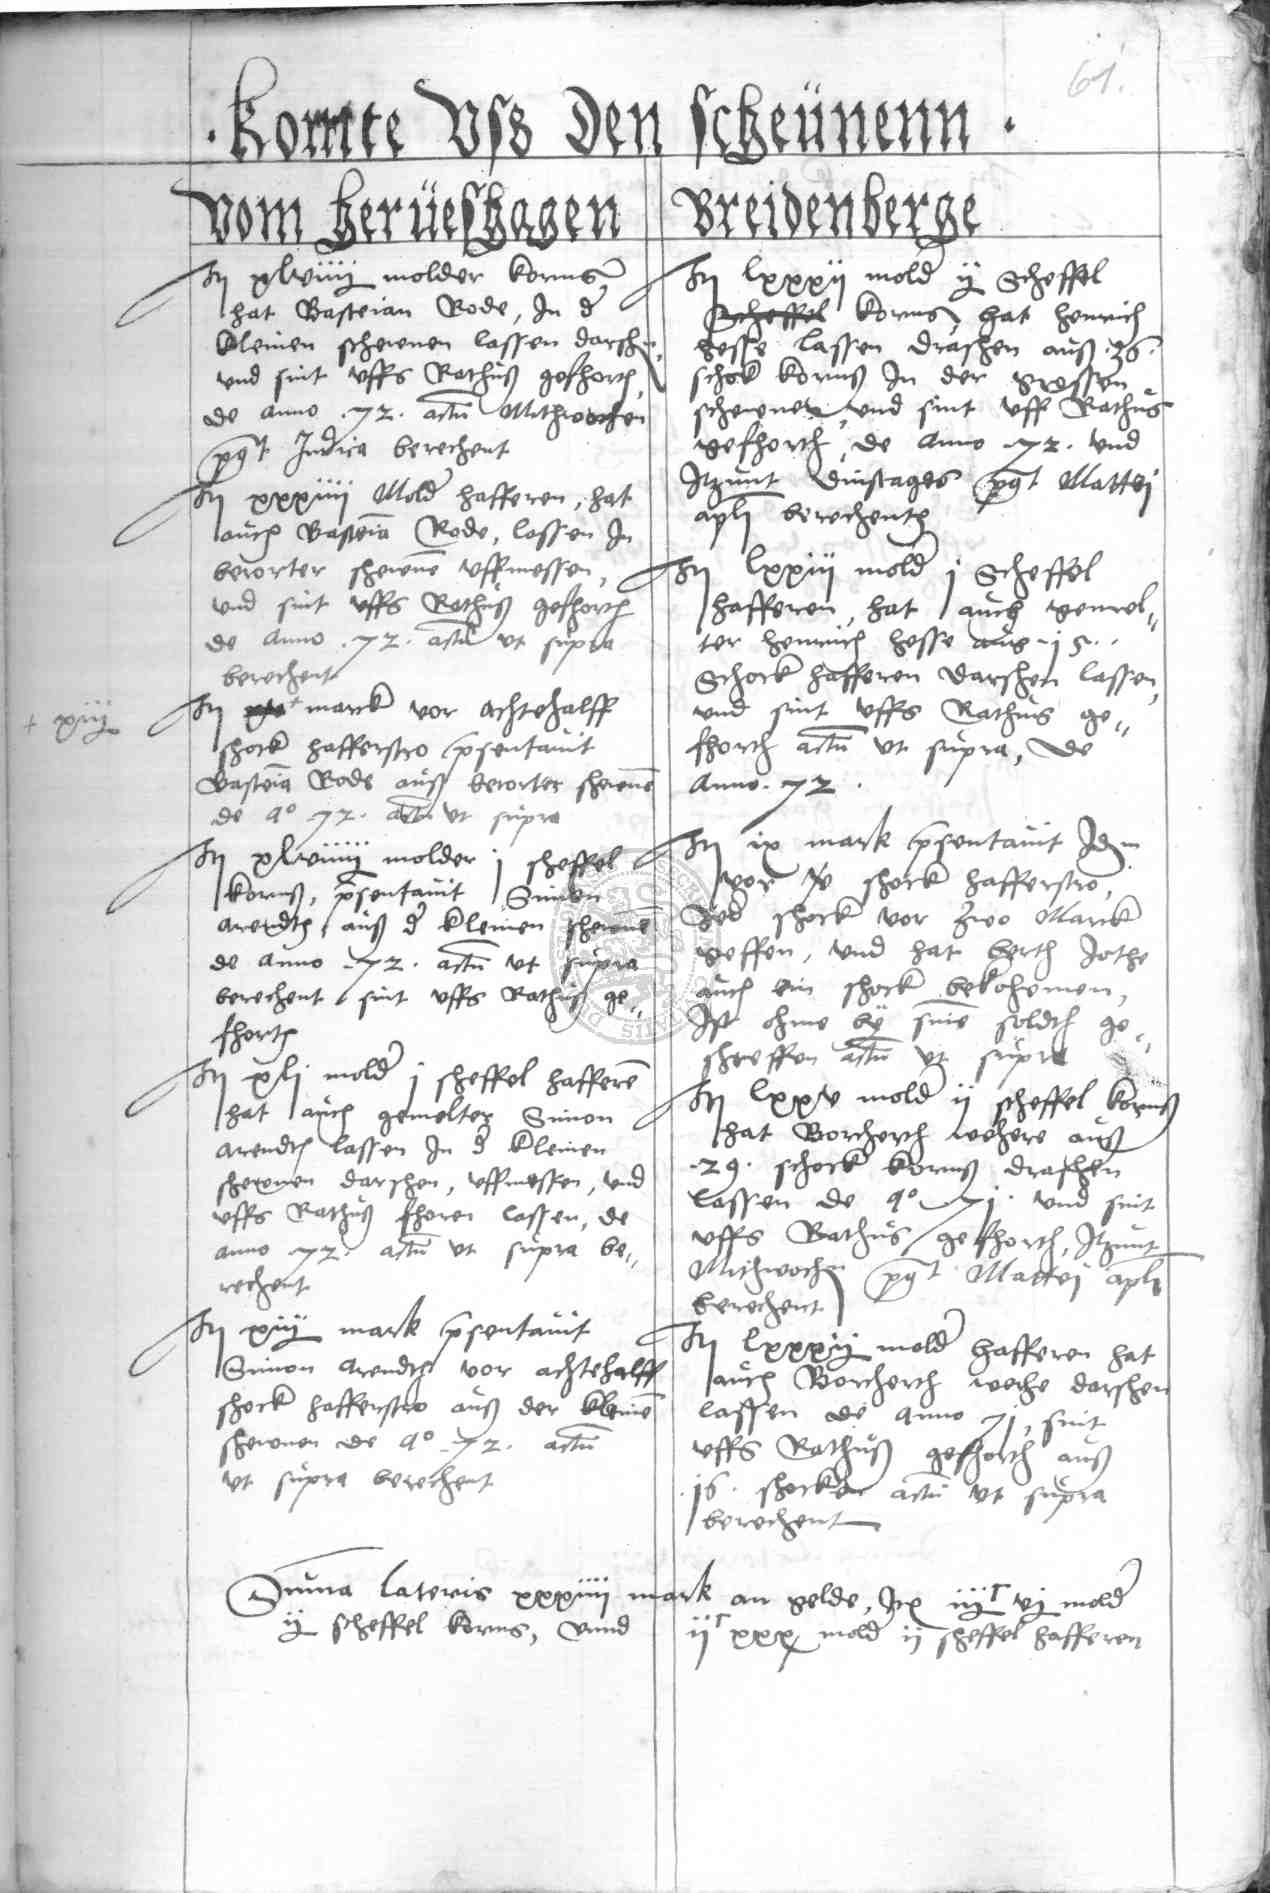 61.
· Komte Vsz Den scheünenn ·
Vom herüeshagen
It xlviiii molder korns,
hat Basteian Rode, In d
kleinen schewnen lassen darsch
vnd sint vffs Rathuß gefhort,
de anno .72. actu Mithwochen
pt Judica berechent
It xxxiiii Mold hafferen, hat
auch Basteia Rode, lassen In
berorter shewne vffmessen,
vnd sint vffs Rathuß gefhort
de anno .72. actu vt supra
berechent
+ xiij
It + marck vor achtehalff
shock hafferstro psentauit
Basteia Rode auß berorter shewne
de ao 72. actu vt supra
It xlviiii molder j sheffel
kornß, psentauit Simon
arendt, auß d kleinen shewne
de anno .72. actu vt supra
berechent, sint vffs Rathuß ge„
fhort
It xlj mold j sheffel haffere
hat auch gemelter Simon
arendt lassen In d kleinen
shewnen darshen, vffmessen, vnd
vffs Rathuß fhoren lassen, de
anno 72. actu vt supra be„
rechent
It xiij mark psentauit
Simon Arendt vor achtehalff
shock hafferstro auß der kleine
shewnen de ao 72. actu
vt supra berechent
Breidenberge
It lxxxij mold ij Scheffel
Scheffel korns, hat henrich
hesse lassen drashen auß .36.
schok kornß In der grossen
schewnen, vnd sint vff Rathus
gefhort, de Anno .72. vnd
Itzunt Dinstages pt Mattej
apli berechent
It lxxiij mold j Scheffel
hafferen, hat auch gemel„
ter henrich hesse auß 15.
Schock hafferen darshen lassen,
vnd sint vffs Rathus ge„
fhort actu vt supra, De
Anno .72.
It ix mark psentauit Idem
vor shock hafferstro,
Jed shock vor zwo Marck
geffen, vnd hat
auch ein shock bekohemen,
Ist ohme by sine soldt ge„
shreffen actu vt supra
It lxxv mold ij scheffel kornß
hat Borchert wehere auß
.29. schock kornß drashen
lassen de ao 71. vnd sint
vffs Rathus gefhort, Itzunt
Mithwochen pt Mattej apli
berechent
It lxxxij mold hafferen hat
auch Borchert darshen
lassen de anno 71, sint
vffs Rathuß gefhort auß
.16. shocken actu vt supra
berechent
Suma lateris xxxiiii mark an gelde, It iijc vj mold
ij scheffel korns, vnnd ijc xxx mold ij sheffel hafferen